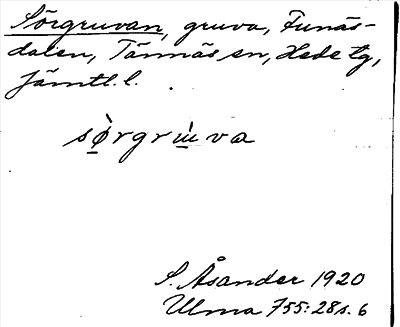 Sörgruvan, gruva, Funäs-
dalen, Tännäs sn, Hede tg,
Jämtl. l.
sò̱rgrùva
S. Åsander 1920
Ulma 755:28 s. 6